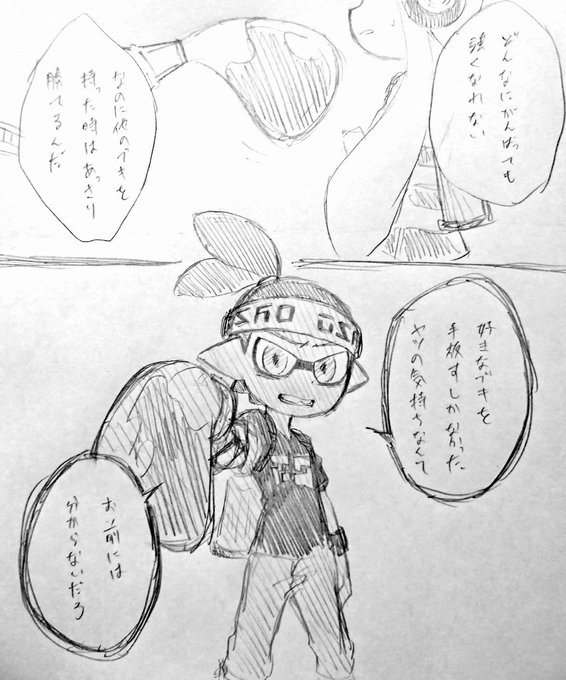 どんなにがんばっても
強くなれない
なのに他のブキを
持った時はあっさり
勝てるんだ
好きなブキを
手放すしかなかった
ヤツの気持ちなんて
お前には
分からないだろ